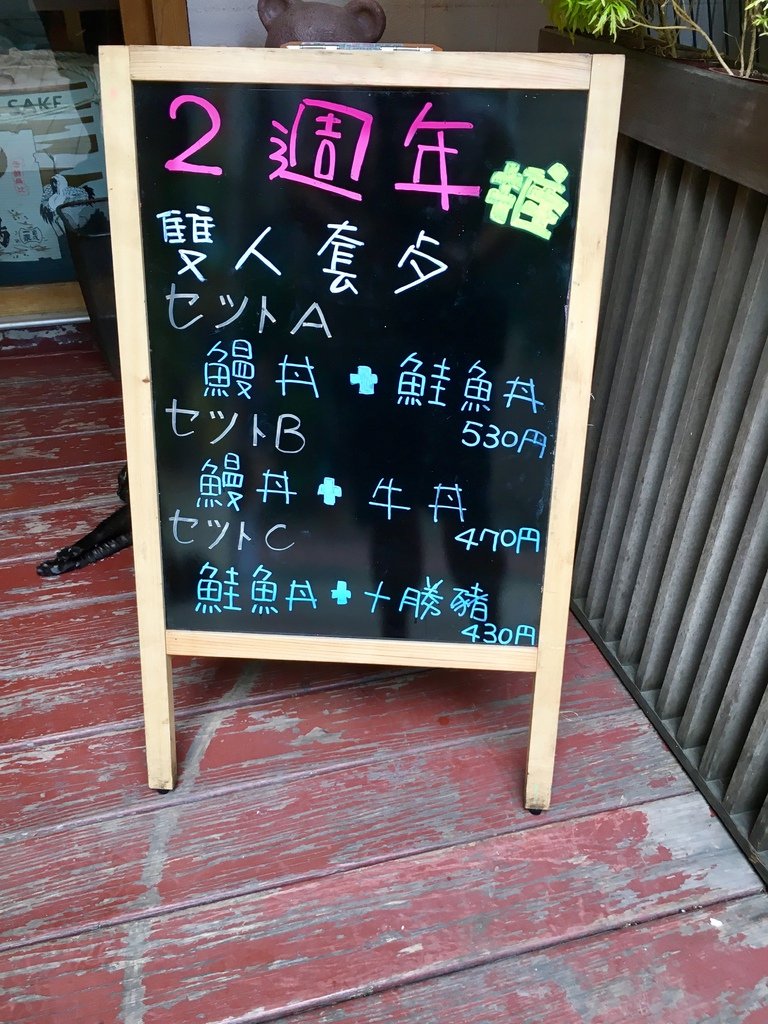 CAKE
2週年 推
雙人套夕
セットA
鰻丼+鮭魚丼
530円
セットB
鰻丼+牛丼
470円
セットC
鮭魚丼+十勝豬
430円